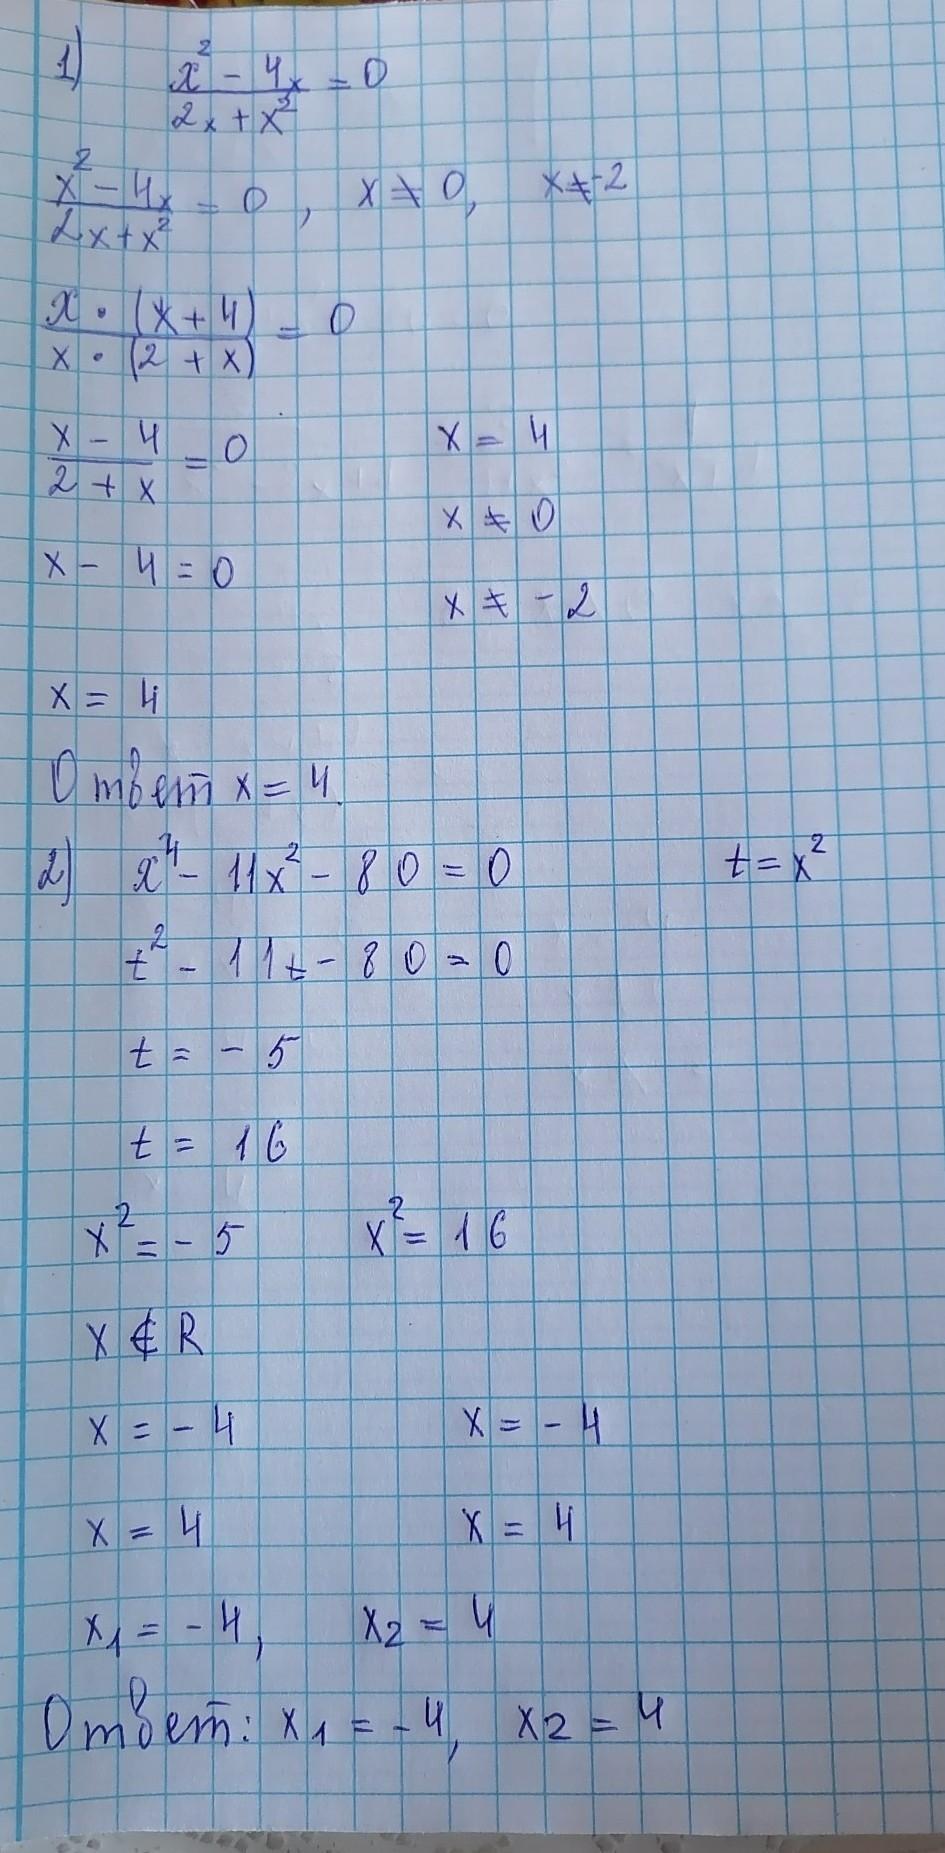 1) (x² - 4x)/(2x + x²) = 0
(x² - 4x)/(2x + x²) = 0, x ≠ 0, x ≠ -2
(x · (x + 4))/(x · (2 + x)) = 0
(x - 4)/(2 + x) = 0 x = 4
x ≠ 0
x - 4 = 0
x ≠ -2
x = 4
Ответ x = 4.
2) x⁴ - 11x² - 80 = 0 t = x²
t² - 11t - 80 = 0
t = - 5
t = 16
x² = - 5 x² = 16
x ∉ R
x = - 4 x = - 4
x = 4 x = 4
x₁ = - 4, x₂ = 4
Ответ: x₁ = - 4, x₂ = 4